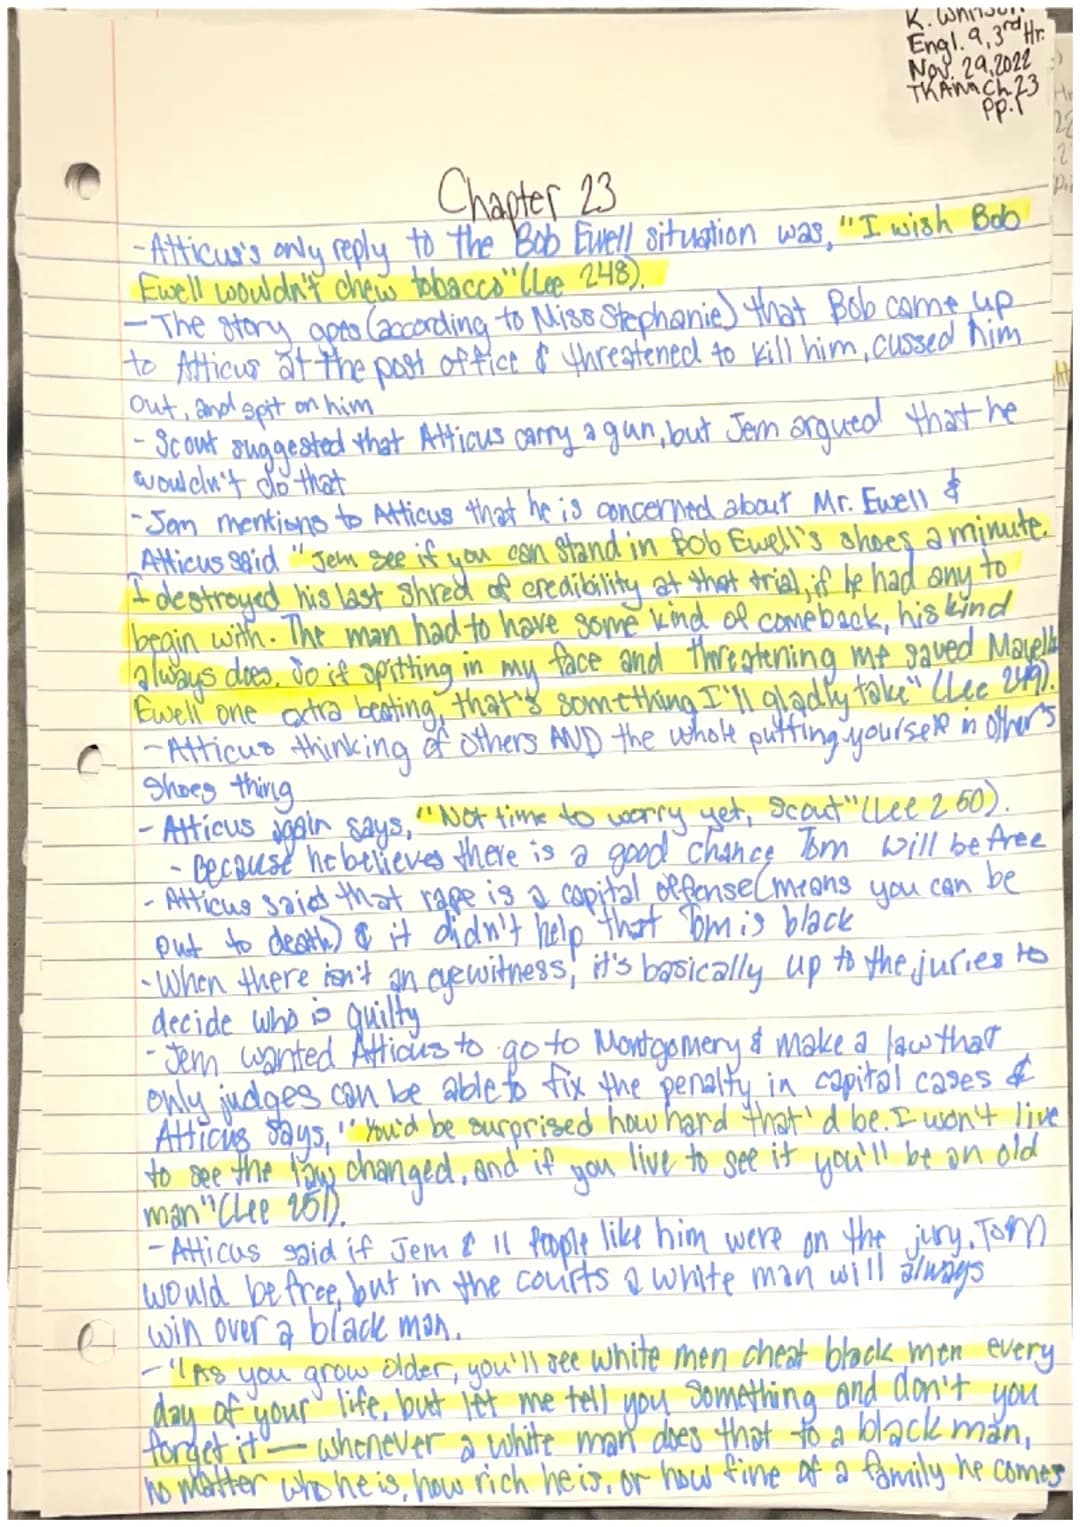 Engl. 9, 3rd Hr.
Nov. 29, 2022
TKAM Ch. 23
pp. 1
Chapter 23
- Atticus's only reply to the Bob Ewell situation was, "I wish Bob
Ewell wouldn't chew tobacco" (Lee 248).
- The story goes (according to Miss Stephanie) that Bob came up
to Atticus at the post office & threatened to kill him, cussed him
out, and spit on him
- Scout suggested that Atticus carry a gun, but Jem argued that he
wouldn't do that
- Jem mentions to Atticus that he is concerned about Mr. Ewell &
Atticus said "Jem see if you can stand in Bob Ewell's shoes a minute.
I destroyed his last shred of credibility at that trial, if he had any to
begin with. The man had to have some kind of comeback, his kind
always does. So if spitting in my face and threatening me saved Mayella
Ewell one extra beating, that's something I'll gladly take" (Lee 249).
- Atticus thinking of others AND the whole putting yourself in other's
shoes thing
- Atticus again says, "Not time to worry yet, Scout" (Lee 250).
- Because he believes there is a good chance Tom will be free
- Atticus said that rape is a capital offense (means you can be
put to death) & it didn't help that Tom is black
- When there isn't an eyewitness, it's basically up to the juries to
decide who is guilty
- Jem wanted Atticus to go to Montgomery & make a law that
only judges can be able to fix the penalty in capital cases &
Atticus says, "You'd be surprised how hard that'd be. I won't live
to see the law changed, and if you live to see it you'll be an old
man" (Lee 251).
- Atticus said if Jem & 11 people like him were on the jury, Tom
would be free, but in the courts a white man will always
win over a black man.
- "As you grow older, you'll see white men cheat black men every
day of your life, but let me tell you something and don't you
forget it — whenever a white man does that to a black man,
no matter who he is, how rich he is, or how fine of a family he comes